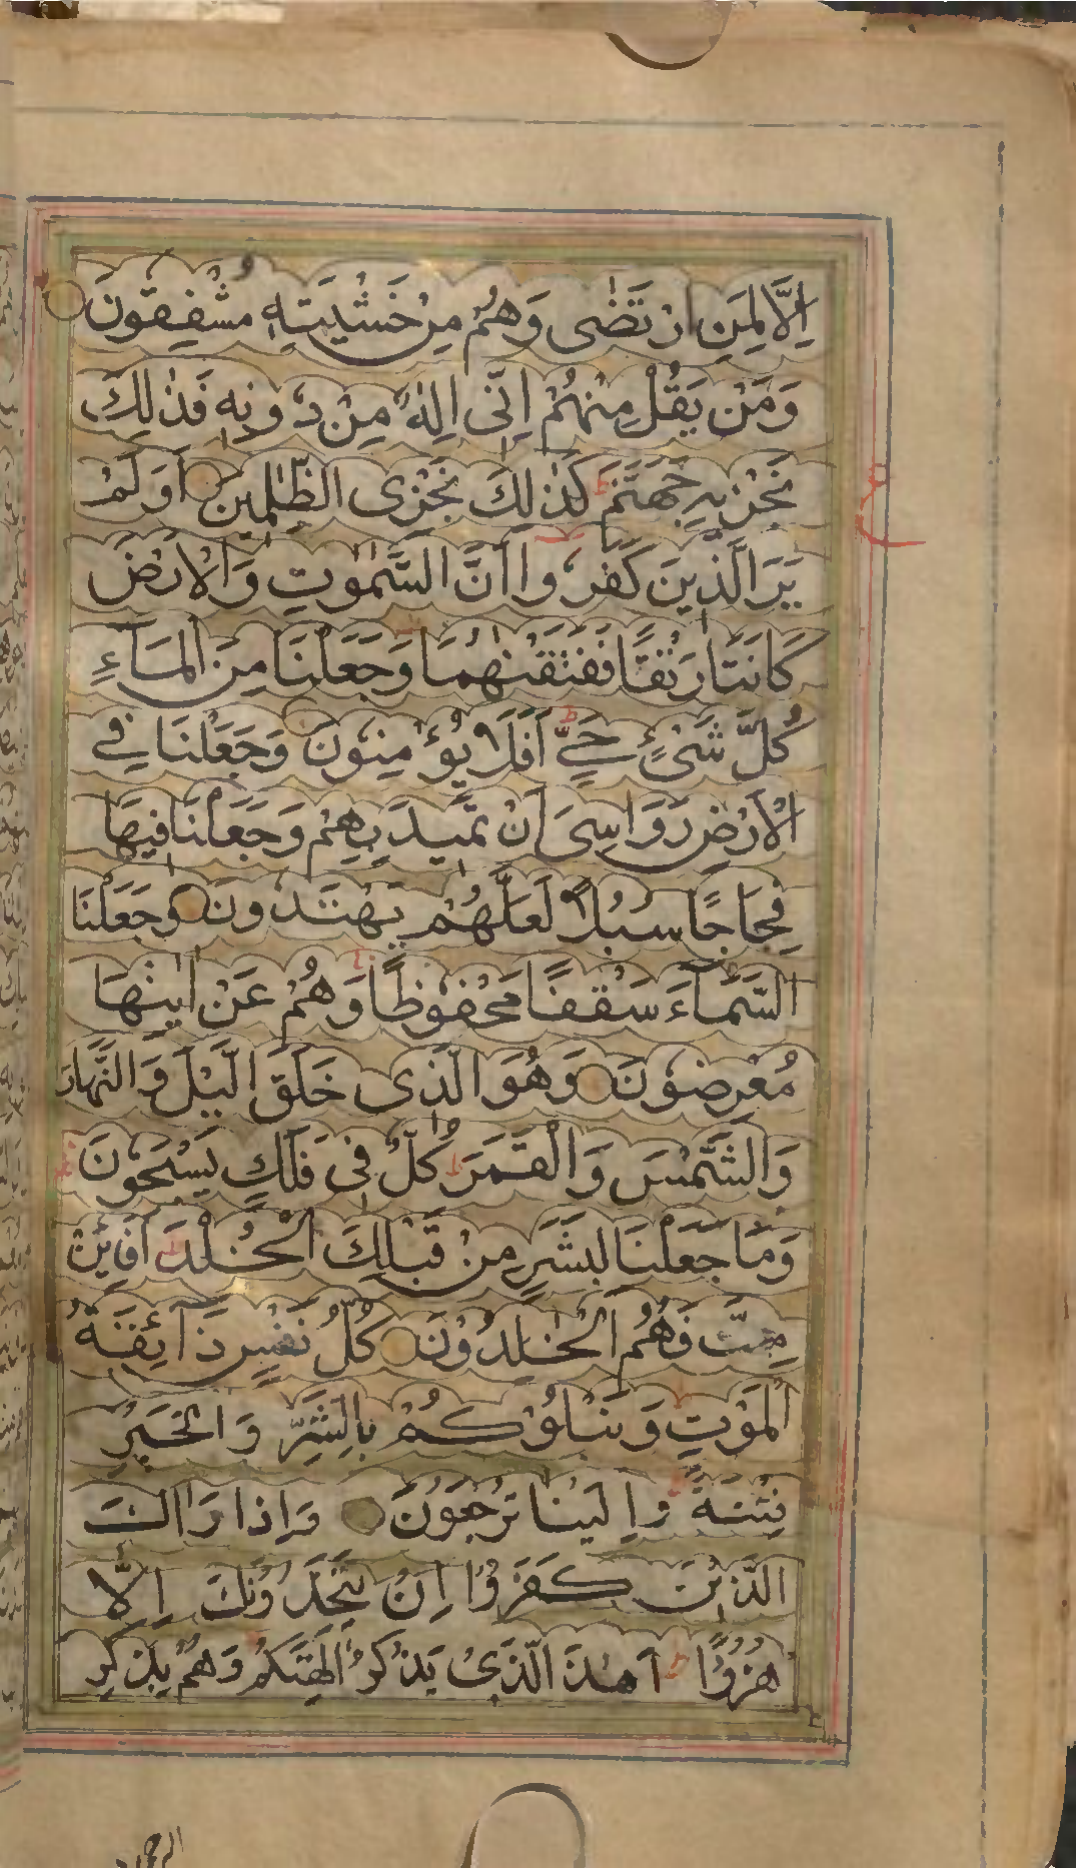 اِلَّا لِمَنِ ارْتَضٰى وَهُمْ مِنْ خَشْيَتِهٖ مُشْفِقُوْنَ
وَمَنْ يَقُلْ مِنْهُمْ اِنِّىْ اِلٰهٌ مِنْ دُوْنِهٖ فَذٰلِكَ
نَجْزِيْهِ جَهَنَّمَ ط كَذٰلِكَ نَجْزِى الظّٰلِمِيْنَ اَوَلَمْ
يَرَ الَّذِيْنَ كَفَرُوْا اَنَّ السَّمٰوٰتِ وَالْاَرْضَ
كَانَتَا رَتْقًا فَفَتَقْنٰهُمَا وَجَعَلْنَا مِنَ الْمَآءِ
كُلَّ شَىْءٍ حَىٍّ ط اَفَلَا يُؤْمِنُوْنَ وَجَعَلْنَا فِى
الْاَرْضِ رَوَاسِىَ اَنْ تَمِيْدَ بِهِمْ وَجَعَلْنَا فِيْهَا
فِجَاجًا سُبُلًا لَعَلَّهُمْ يَهْتَدُوْنَ وَجَعَلْنَا
السَّمَآءَ سَقْفًا مَحْفُوْظًا وَهُمْ عَنْ اٰيٰتِهَا
مُعْرِضُوْنَ وَهُوَ الَّذِىْ خَلَقَ الَّيْلَ وَالنَّهَارَ
وَالشَّمْسَ وَالْقَمَرَ ط كُلٌّ فِىْ فَلَكٍ يَسْبَحُوْنَ
وَمَا جَعَلْنَا لِبَشَرٍ مِنْ قَبْلِكَ الْخُلْدَ ط اَفَائِنْ
مِتَّ فَهُمُ الْخٰلِدُوْنَ كُلُّ نَفْسٍ ذَآئِقَةُ
الْمَوْتِ وَنَبْلُوْكُمْ بِالشَّرِّ وَالْخَيْرِ
فِتْنَةً ط وَاِلَيْنَا تُرْجَعُوْنَ وَاِذَا رَاٰكَ
الَّذِيْنَ كَفَرُوْا اِنْ يَتَّخِذُوْنَكَ اِلَّا
هُزُوًا ط اَهٰذَا الَّذِىْ يَذْكُرُ اٰلِهَتَكُمْ وَهُمْ بِذِكْرِ
الرحمن